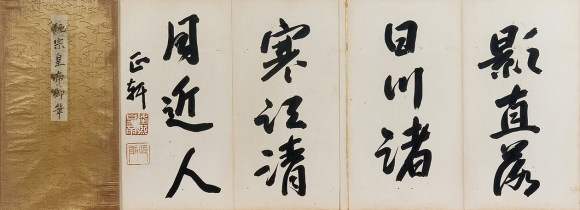 純宗皇帝御筆
影直落
日川渚
寒江清
月近人
正軒